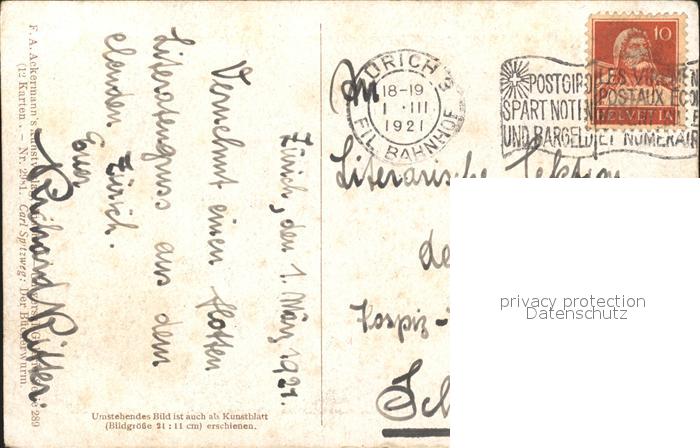 Zürich, den 1. März 1921.
Vernehmt einen flotten
Literatengruss aus dem
elenden Zürich.
Euer
Richard Ritter.
F. A. Ackermann's Kunstverlag
(12 Karten. – Nr. 2981. Carl Spitzweg: Der Bücherwurm.
289
Umstehendes Bild ist auch als Kunstblatt
(Bildgröße 21 : 11 cm) erschienen.
ZÜRICH
18-19
1 · III
1921
FIL. BAHNHOF
POSTGIRO
SPART
UND BARGELD
LES
POSTAUX
ET NUMERAIRE
10
HELVETIA
An
Literarische Sektion
de
Hospiz-
privacy protection
Datenschutz